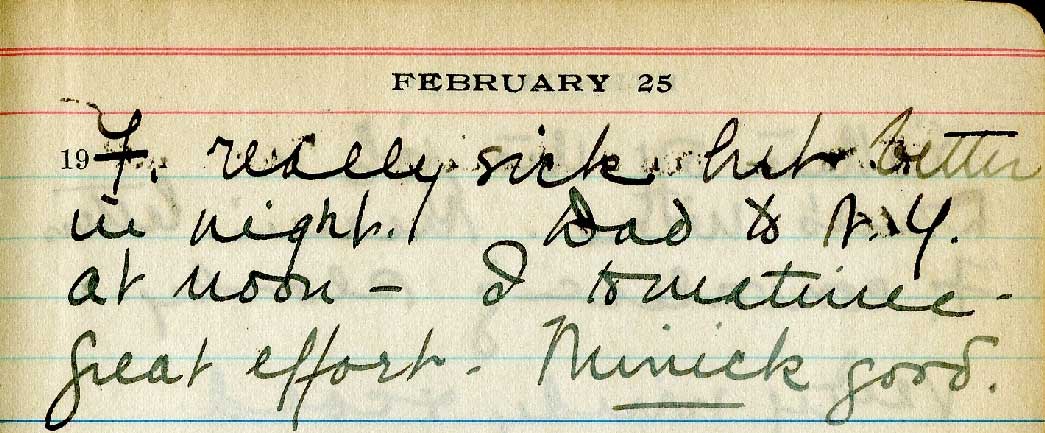 FEBRUARY 25
19 F. really sick but better
in night. Dad to N.Y.
at noon - I to matinee -
great effort. Minick good.